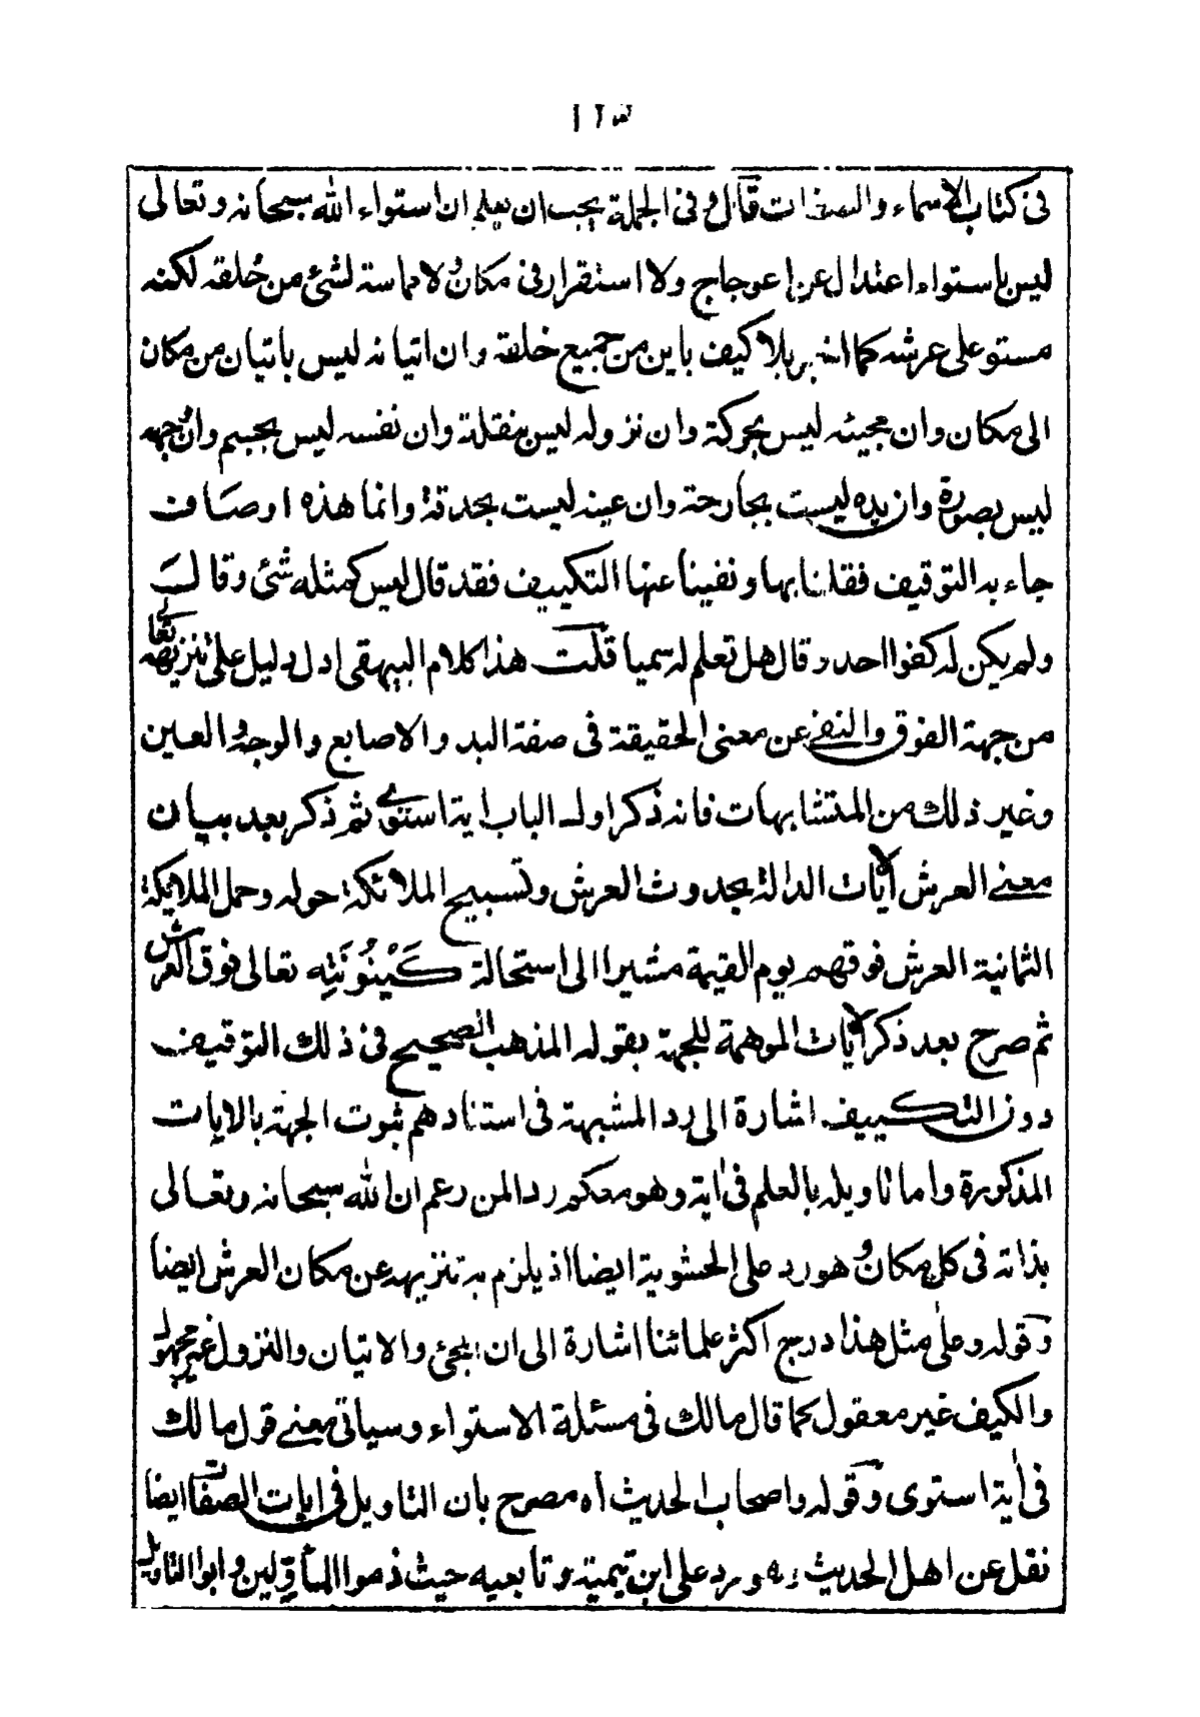 فى كتاب الاسماء والصفات قال وفى الجملة يجب ان يعلم ان استواء الله سبحانه وتعالى
ليس باستواء اعتدال عن اعوجاج ولا استقرار فى مكان ولا مماسة لشئ من خلقه لكنه
مستو على عرشه كما اخبر بلا كيف باين من جميع خلقه وان اتيانه ليس باتيان من مكان
الى مكان وان مجيئه ليس بحركة وان نزوله ليس بنقلة وان نفسه ليس بجسم وان وجهه
ليس بصورة وان يده ليست بجارحة وان عينه ليست بحدقة وانما هذه اوصاف
جاء به التوقيف فقلنا بها ونفينا عنها التكييف فقد قال ليس كمثله شئ وقال
ولم يكن له كفوا احد وقال هل تعلم له سميا قلت هذا كلام البيهقى ادل دليل على تنزيهه تعالى
من جهة الفوق والنفى عن معنى الحقيقة فى صفة اليد والاصابع والوجه والعين
وغير ذلك من المتشابهات فانه ذكر اول الباب اية استوى ثم ذكر بعد بيان
معنى العرش الايات الدالة بحدوث العرش وتسبيح الملائكة حوله وحمل الملايكة
الثمانية العرش فوقهم يوم القيمة مشيرا الى استحالة كَيْنُوْنَتِه تعالى فوق العرش
ثم صرح بعد ذكر الايات الموهمة للجهة بقوله المذهب الصحيح فى ذلك التوقيف
دون التكييف اشارة الى رد المشبهة فى استنادهم ثبوت الجهة بالايات
المذكورة واما تاويله بالعلم فى اية وهو معكم ردا لمن زعم ان الله سبحانه وتعالى
بذاته فى كل مكان وهو رد على الحشوية ايضا اذ يلزم به تنزيهه عن مكان العرش ايضا
وقوله وعلى مثل هذا درج اكثر علمائنا اشارة الى ان المجئ والاتيان والنزول غير مجهول
والكيف غير معقول كما قال مالك فى مسئلة الاستواء وسياتى معنى قول مالك
فى اية استوى وقوله واصحاب الحديث اه مصرح بان التاويل فى ايات الصفات ايضا
نقل عن اهل الحديث وهو رد على ابن تيمية وتابعيه حيث ذموا المأولين وابوا التاويل